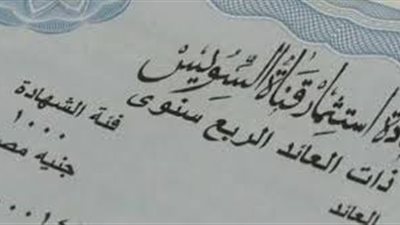 استثمار قناة السويس
ذات العائد الربع سنوى
فئة الشهادة
١٠٠٠
جنيه
العائد